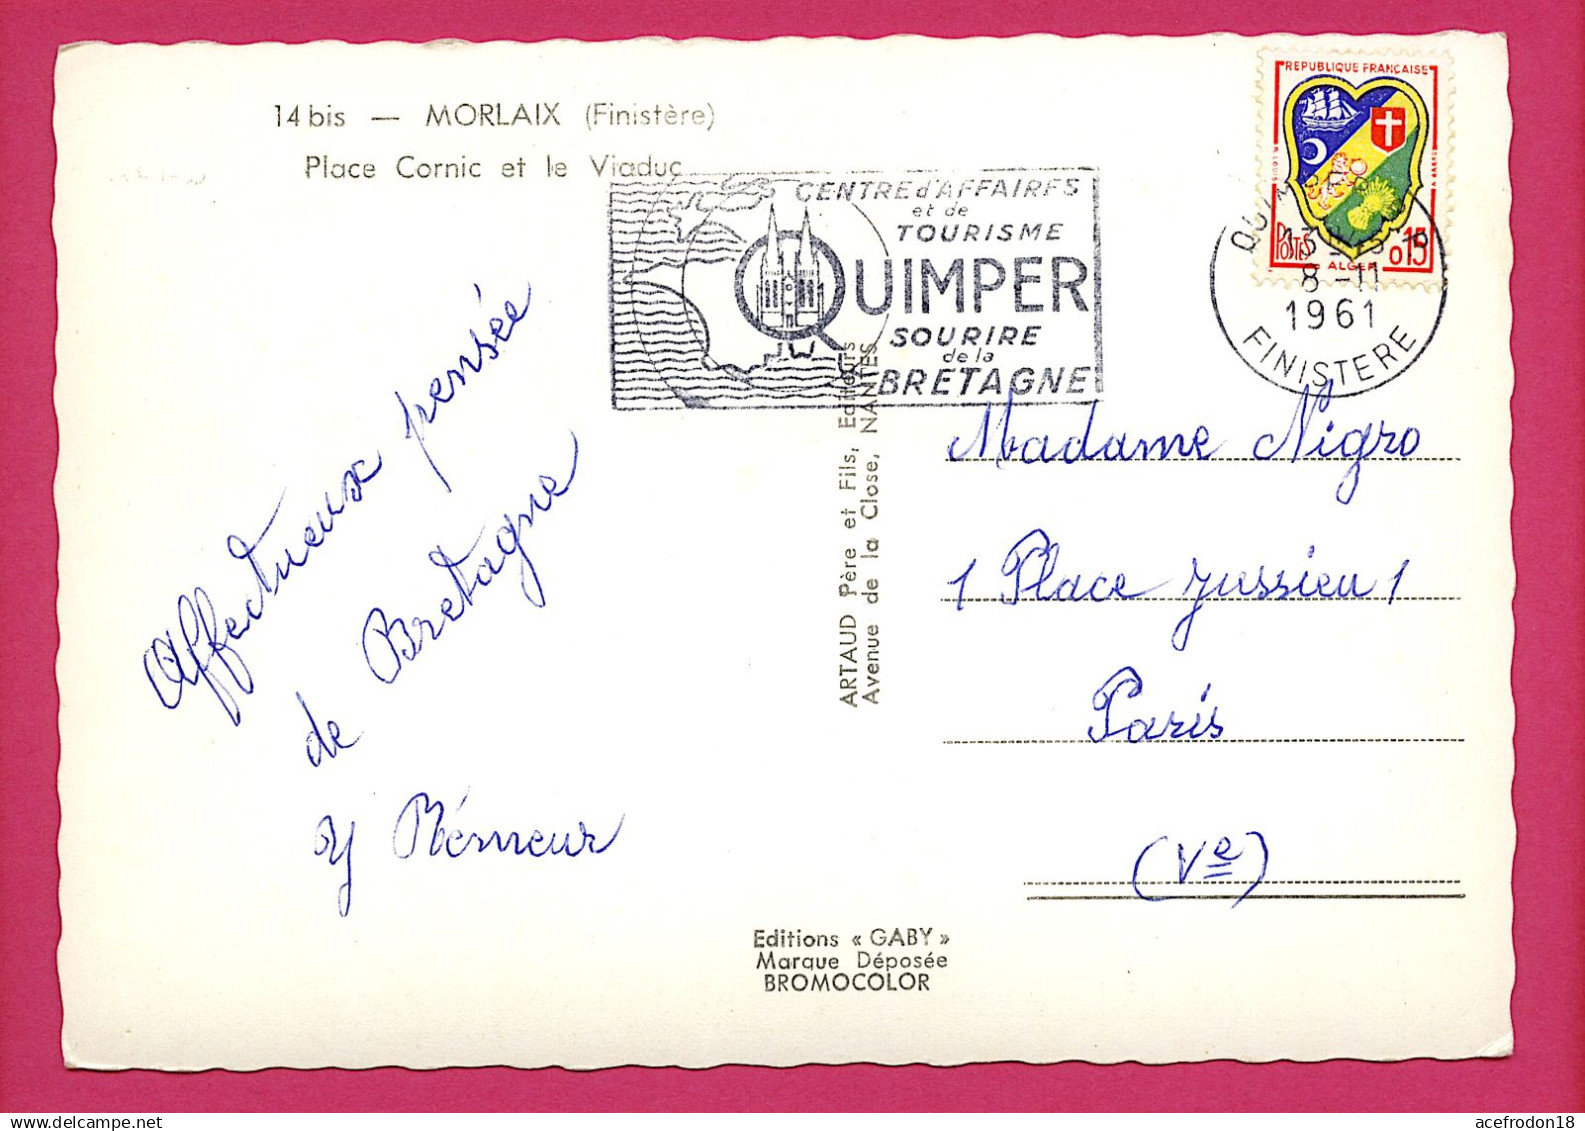 14 bis — MORLAIX (Finistère)
Place Cornic et le Viaduc
CENTRE d'AFFAIRES
et de
TOURISME
QUIMPER
SOURIRE
de la
BRETAGNE
REPUBLIQUE FRANÇAISE
POSTES
ALGER
0,15
8 - 11
1961
FINISTERE
ARTAUD Père et Fils, Editeurs
Avenue de la Close, NANTES
Affectueux pensée
de Bretagne
Madame Nigro
1 Place Jussieu 1
Paris
(Ve)
Editions « GABY »
Marque Déposée
BROMOCOLOR
acefrodon18